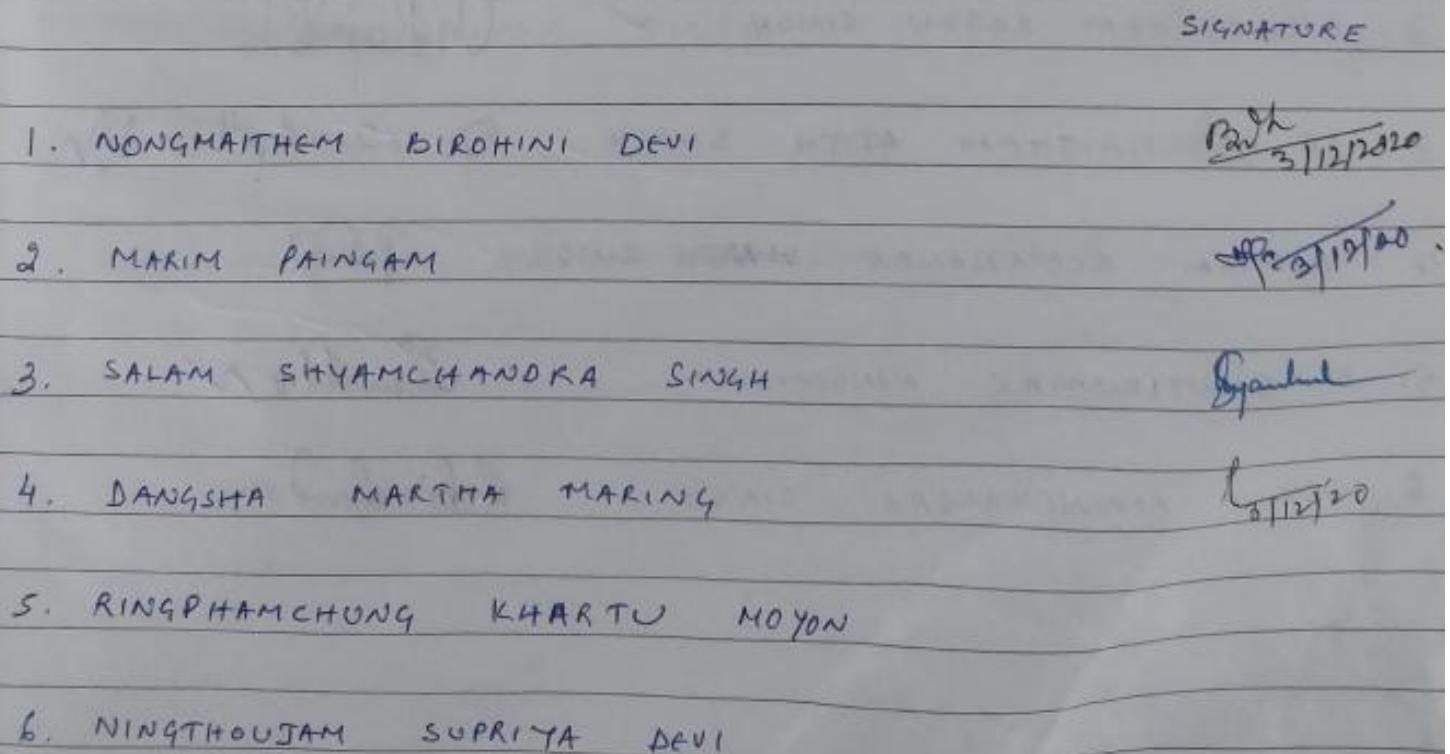 SIGNATURE
1. NONGMAITHEM BIROHINI DEVI 3/12/2020
2. MARIM PAINGAM 3/12/20.
3. SALAM SHYAMCHANDRA SINGH
4. DANGSHA MARTHA MARING 3/12/20
5. RINGPHAMCHUNG KHARTU MOYON
6. NINGTHOUJAM SUPRIYA DEVI